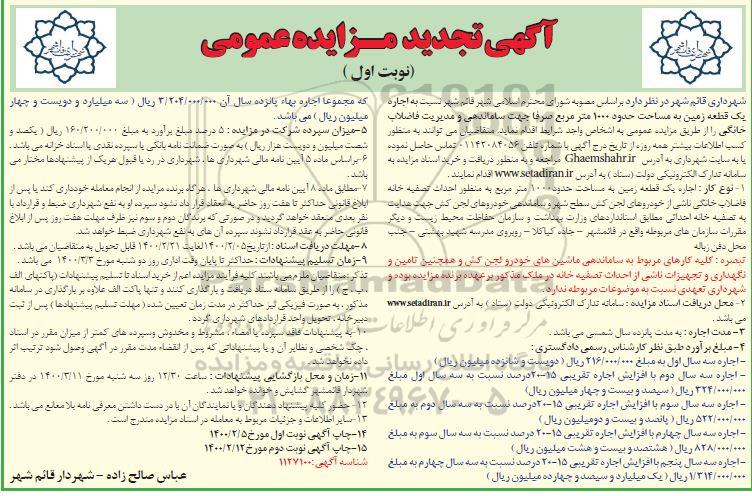 آگهی تجدید مـزایده عمومی
(نوبت اول )
شهرداری قائم شهر در نظر دارد براساس مصوبه شورای محترم اسلامی شهر قائم شهر نسبت به اجاره
یک قطعه زمین به مساحت حدود ۱۰۰۰ متر مربع صرفا جهت ساماندهی و مدیریت فاضلاب
خانگی را از طریق مزایده عمومی به اشخاص واجد شرایط اقدام نماید. متقاضیان می توانند به منظور
کسب اطلاعات بیشتر همه روزه از تاریخ درج آگهی با شماره تلفن ۰۱۱۴۲۰۸۴۰۵۶ تماس حاصل نموده
یا به سایت شهرداری به آدرس Ghaemshahr.ir مراجعه و به منظور دریافت و خرید اسناد مزایده به
سامانه تدارک الکترونیکی دولت (ستاد ) به آدرس www.setadiran.ir اقدام نمایند .
۱- نوع کار : اجاره یک قطعه زمین به مساحت حدود ۱۰۰۰ متر مربع به منظور احداث تصفیه خانه
فاضلاب خانگی ناشی از خودروهای لجن کش سطح شهر و ساماندهی خودروهای لجن کش جهت هدایت
به تصفیه خانه احداثی مطابق استانداردهای وزارت بهداشت و سازمان حفاظت محیط زیست و دیگر
مقررات سازمان های مربوطه واقع در قائمشهر – جاده کیاکلا – روبروی مدرسه شهید بهشتی – جنب
محل دفن زباله
تبصره : کلیه کارهای مربوط به ساماندهی ماشین های خودرو لجن کش و همچنین تامین و
نگهداری و تجهیزات ناشی از احداث تصفیه خانه در ملک مذکور بر عهده برنده مزایده بوده و
شهرداری تعهدی نسبت به موضوعات مربوطه ندارد .
۲- محل دریافت اسناد مزایده : سامانه تدارک الکترونیکی دولت (ستاد ) به آدرس www.setadiran.ir
می باشد .
۳- مدت اجاره : به مدت پانزده سال شمسی می باشد .
۴- مبلغ برآورد طبق نظر کارشناس رسمی دادگستری :
– اجاره سه سال اول به مبلغ ۲۱۶/۰۰۰/۰۰۰ ریال ( دویست و شانزده میلیون ریال )
– اجاره سه سال دوم با افزایش اجاره تقریبی ۱۵–۲۰درصد نسبت به سه سال اول مبلغ
۳۲۴/۰۰۰/۰۰۰ ریال ( سیصد و بیست و چهار میلیون ریال)
– اجاره سه سال سوم با افزایش اجاره تقریبی ۱۵–۲۰درصد نسبت به سه سال دوم به مبلغ
۵۲۲/۰۰۰/۰۰۰ ریال ( پانصد و بیست و دومیلیون ریال)
– اجاره سه سال چهارم با افزایش اجاره تقریبی ۱۵–۲۰ درصد نسبت به سه سال سوم به مبلغ
۸۲۸/۰۰۰/۰۰۰ ریال ( هشتصد و بیست و هشت میلیون ریال)
– اجاره سه سال پنجم با افزایش اجاره تقریبی ۱۵–۲۰ درصد نسبت به سه سال چهارم به مبلغ
۱/۳۱۴/۰۰۰/۰۰۰ ریال ( یک میلیارد و سیصد و چهارده میلیون ریال)
که مجموعا اجاره بهاء پانزده سال آن ۳/۲۰۴/۰۰۰/۰۰۰ ریال ( سه میلیارد و دویست و چهار
میلیون ریال ) می باشد .
۵–میزان سپرده شرکت در مزایده : ۵ درصد مبلغ برآورد به مبلغ ۱۶۰/۲۰۰/۰۰۰ ریال ( یکصد و
شصت میلیون و دویست هزار ریال ) به صورت ضمانت نامه بانکی یا سپرده نقدی یا اسناد خزانه می باشد .
۶–براساس ماده ۵ آیین نامه مالی شهرداری ها ، شهرداری در رد یا قبول هریک از پیشنهادها مختار می
باشد .
۷–مطابق ماده ۸ آیین نامه مالی شهرداری ها ، هرگاه برنده مزایده از انجام معامله خودداری کند یا پس از
ابلاغ قانونی حداکثر تا هفت روز حاضر به انعقاد قرار داد نشود سپرده او به نفع شهرداری ضبط و قرارداد با
نفر بعدی منعقد خواهد گردید و در صورتی که برندگان دوم و سوم نیز ظرف مهلت هفت روز پس از ابلاغ
قانونی حاضر به عقد قرارداد نشوند سپرده آن های به نفع شهرداری ضبط خواهد شد.
۸–مهلت دریافت اسناد : از تاریخ ۱۴۰۰/۲/۰۵لغایت ۱۴۰۰/۲/۲۱ قابل تحویل به متقاضیان می باشد .
۹–زمان تسلیم پیشنهادات : حداکثر تا پایان وقت اداری روز دو شنبه مورخ ۱۴۰۰/۳/۳ می باشد .
تذکر: متقاضیان ملزم می باشند کلیه فرآیند مزایده اعم از خرید اسناد تا تسلیم پیشنهادات (پاکتهای الف
، ب ، ج ) را از طریق سامانه ستاد دریافت و بارگذاری کنند و تنها پاکت الف علاوه بر بارگذاری در سامانه
مذکور ، به صورت فیزیکی نیز حداکثر در مدت زمان تعیین شده ( مهلت تسلیم پیشنهادها ) پس از ثبت
دبیر خانه ، تحویل واحد قراردادهای شهرداری گردد .
۱۰– به پیشنهادات فاقد سپرده یا امضاء مشروط و مخدوش و سپرده های کمتر از میزان مقرر در اسناد
، چک شخصی و نظایر آن و یا پیشنهاداتی که پس از انقضاء مدت مقرر در آگهی وصول شود ترتیب اثر
داده نخواهد شد .
۱۱–زمان و محل بازگشایی پیشنهادات : ساعت ۱۲/۳۰ روز سه شنبه مورخ ۱۴۰۰/۳/۱۱ در دفتر
شهردار قائمشهر گشایش و خوانده خواهد شد .
۱۲– حضور کلیه پیشنهاد دهندگان و یا نمایندگان آن با در دست داشتن معرفی نامه بلا معانع می باشد .
۱۳– سایر اطلاعات و جزئیات مربوط به معامله در اسناد مزایده مندرج است .
۱۴–چاپ آگهی نوبت اول مورخ ۱۴۰۰/۲/۵
۱۵–چاپ آگهی نوبت دوم مورخ ۱۴۰۰/۲/۱۲
شناسه آگهی: ۱۱۲۷۱۰۰
عباس صالح زاده – شهردار قائم شهر